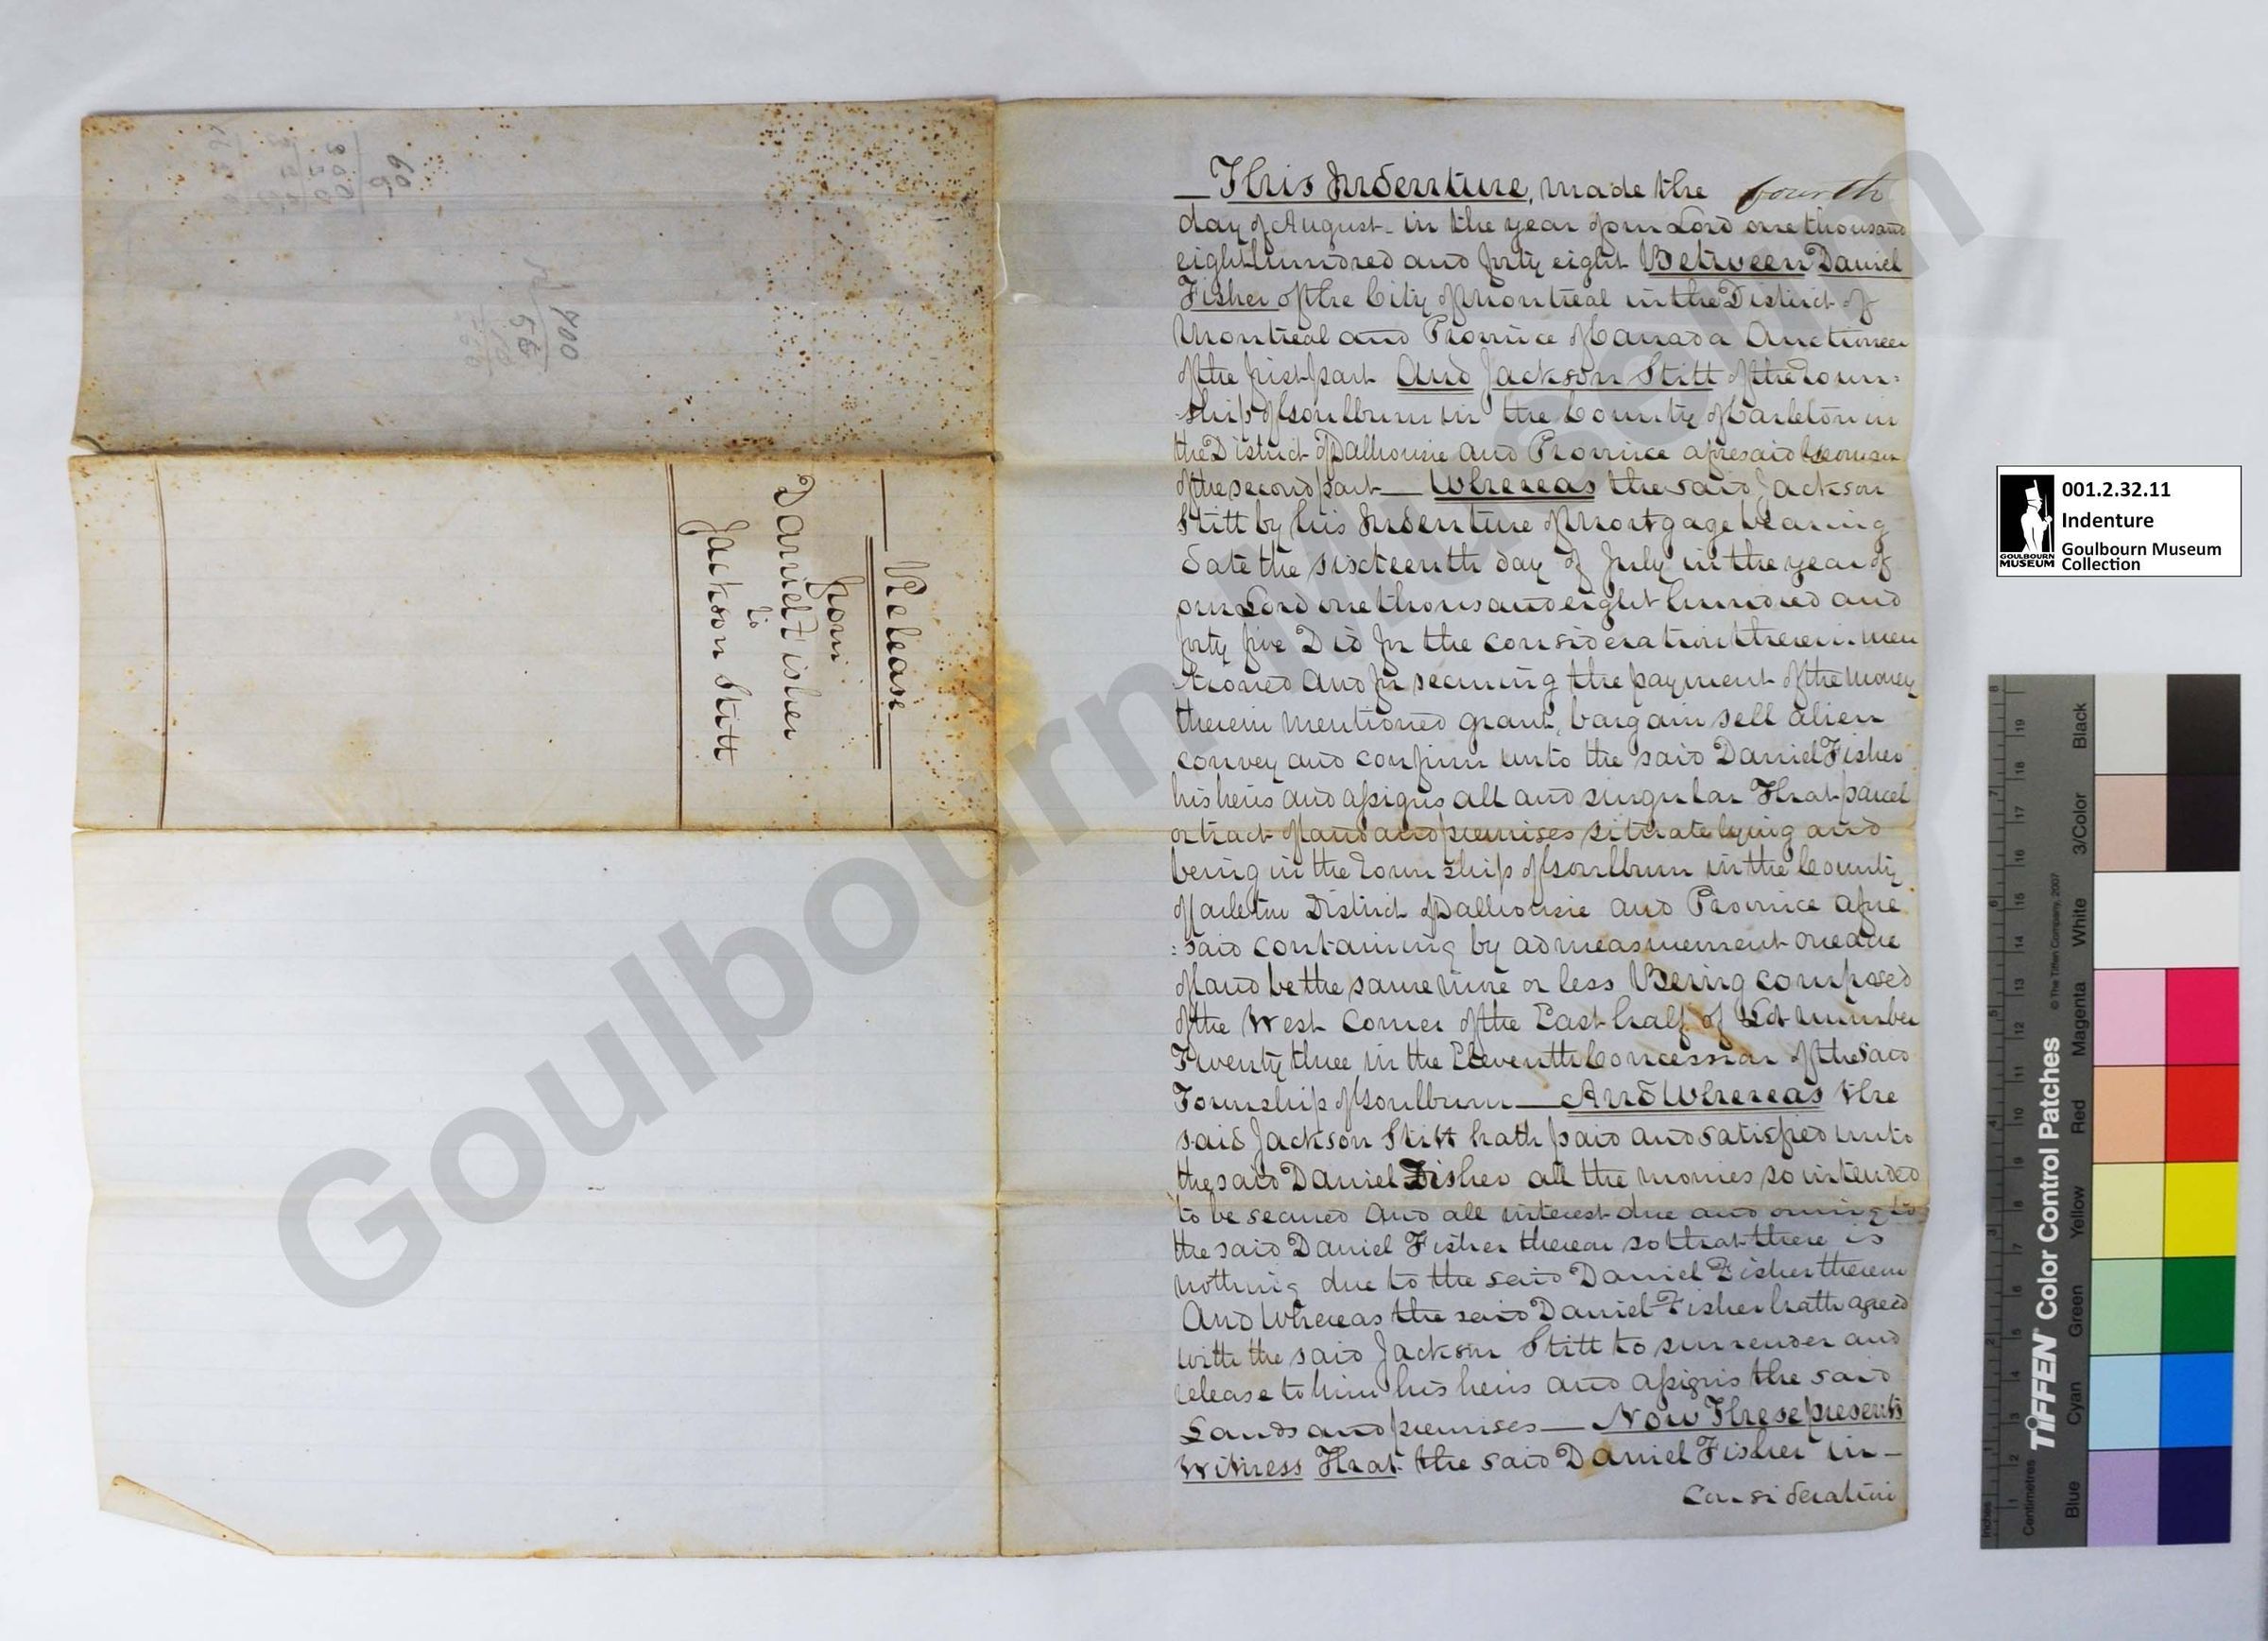 This Indenture, made the fourth
day of August in the year of our Lord one thousand
eight hundred and forty eight Between Daniel
Fisher of the City of Montreal in the District of
Montreal and Province of Canada Auctioneer
of the first part And Jackson Stitt of the Town=
ship of Goulburn in the County of Carleton in
the District of Dalhousie and Province aforesaid Yeoman
of the second part — Whereas the said Jackson
Stitt by his Indenture of Mortgage bearing
date the sixteenth day of July in the year of
our Lord one thousand eight hundred and
forty five Did for the consideration therein men
tioned and for securing the payment of the money
therein mentioned grant, bargain sell alien
convey and confirm unto the said Daniel Fisher
his heirs and assigns all and singular That parcel
or tract of land and premises situate lying and
being in the Township of Goulburn in the County
of Carleton District of Dalhousie and Province afore
=said containing by admeasurement one acre
of land be the same more or less Being composed
of the West Corner of the East half of Lot number
Twenty three in the Eleventh Concession of the said
Township of Goulburn — And Whereas the
said Jackson Stitt hath paid and satisfied unto
the said Daniel Fisher all the monies so intended
to be secured and all interest due and owing to
the said Daniel Fisher thereon so that there is
nothing due to the said Daniel Fisher thereon
And Whereas the said Daniel Fisher hath agreed
with the said Jackson Stitt to surrender and
release to him his heirs and assigns the said
Lands and premises — Now These presents
Witness That the said Daniel Fisher in —
Consideration
Release
from
Daniel Fisher
to
Jackson Stitt
400
Goulbourn Museum
001.2.32.11
Indenture
Goulbourn Museum
Collection
GOULBOURN
MUSEUM
TIFFEN Color Control Patches
© The Tiffen Company, 2007
Inches
Centimetres
Blue
Cyan
Green
Yellow
Red
Magenta
White
3/Color
Black